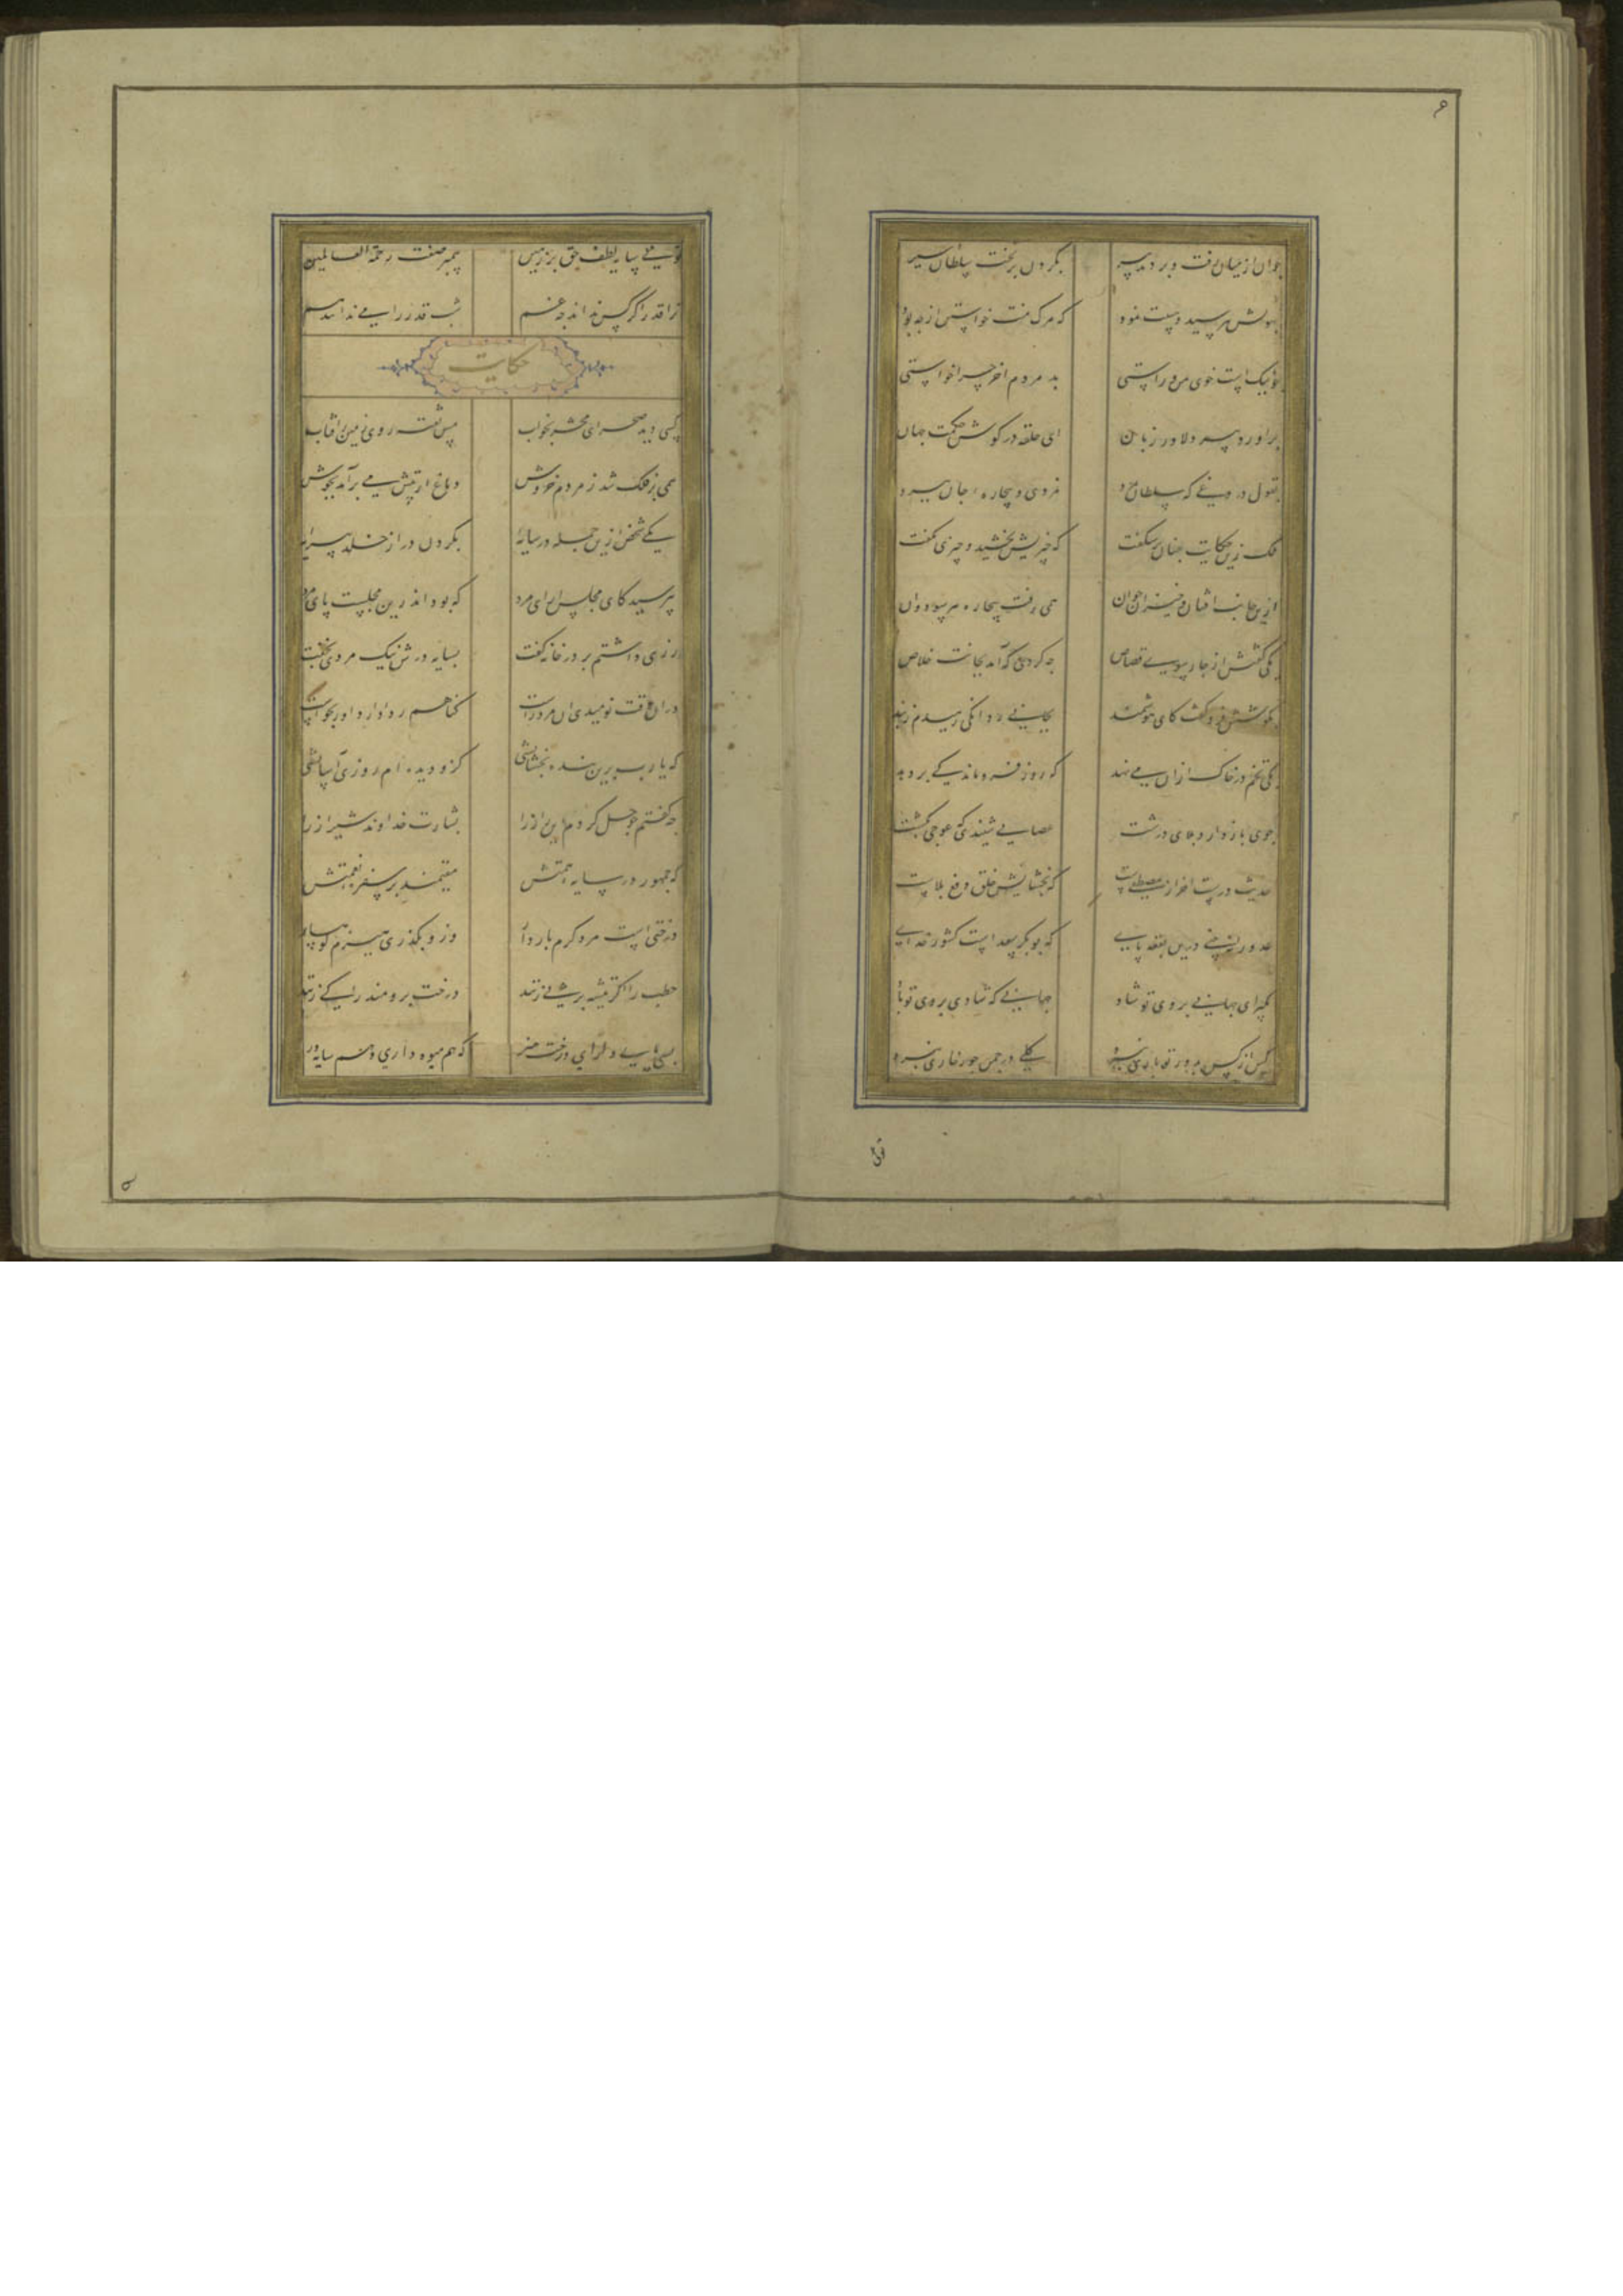 جوان از میان رفت و بردند پیر
بگردن بر تخت سلطان اسیر
بهولش بپرسید و هیبت نمود
که مرک منت خواستن از چه بود
چو نیکست خوی من و راستی
بد مردم آخر چرا خواستی
برآورد پیر دلاور زبان
که ای حلقه در کوش حکمت جهان
بقول دروغی که سلطان بمرد
نمردی و بیچاره جان ببرد
ملک زین حکایت چنان بشکفت
که چیزیش بخشید و چیزی نکفت
ازین جانب افتان و خیزان جوان
همی رفت بیچاره هر سو دوان
یکی کفتش از چارسوی قصاص
چه کردی که آمد بجانت خلاص
بکوشش فرو کفت کای هوشمند
بجانی و دانکی رهیدم ز بند
یکی تخم در خاک ازان می نهد
که روز فروماندکی بر دهد
جوی باز دارد بلای درشت
عصایی شنیدی که عوجی بکشت
حدیث درست آخر از مصطفاست
که بخشایش خلق دفع بلاست
عدو را نبینی درین بقعه پای
که بوبکر سعدست کشور خدای
بگیر ای جهانی بروی تو شاد
جهانی که شادی بروی تو باد
کس از کس بدور تو باری نبرد
کلی در چمن جور خاری نبرد
تویی سایه لطف حق بر زمین
پیمبر صفت رحمة العالمین
ترا قدر اکر کس نداند چه غم
شب قدر را می ندانند هم
حکایت
کسی دید صحرای محشر بخواب
مس تفته روی زمین ز آفتاب
همی بر فلک شد ز مردم خروش
دماغ از تپش می برآمد بجوش
یکی شخص ازین جمله در سایه
بگردن در از خلد پیرایه
بپرسید کای مجلس آرای مرد
که بود اندرین مجلست پای مرد
رزی داشتم بر در خانه کفت
بسایه درش نیک مردی بخفت
دران وقت نومیدی آن مرد راست
کناهم ز دادار داور بخواست
که یا رب برین بنده بخشایشی
کزو دیده ام روزی آسایشی
چه کفتم چو حل کردم این راز را
بشارت خداوند شیراز را
که جمهور در سایه همتش
مقیمند بر سفره نعمتش
درختی است مرد کرم باردار
وزو بکذری هیزم کوهسار
حطب را اکر تیشه بر پی زنند
درخت برومند را کی زنند
بسی پای دار ای درخت هنر
که هم میوه داری و هم سایه ور